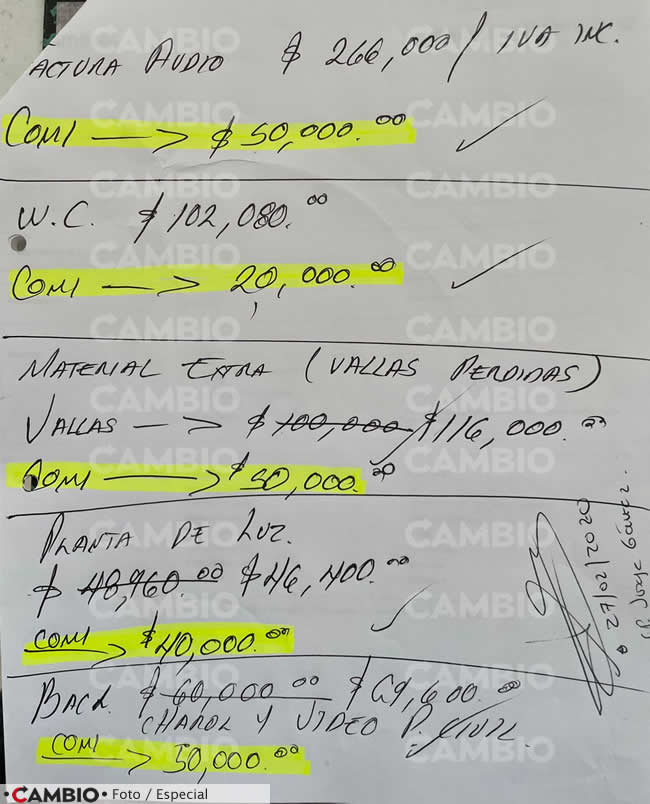 FACTURA AUDIO $ 266,000 / IVA INC.
COMI → $ 50,000.00
W.C. $ 102,080.00
COMI → 20,000.00
MATERIAL EXTRA (VALLAS PERDIDAS)
VALLAS → $ 100,000 $ 116,000.00
COMI → $ 50,000.00
PLANTA DE LUZ.
$ 40,960.00 $ 46,400.00
COMI → $ 40,000.00
BACK. $ 60,000.00 $ 69,600.00
CHAROL Y VIDEO P.
COMI → 50,000.00
27/02/2020
Jorge
CAMBIO
•CAMBIO• Foto / Especial